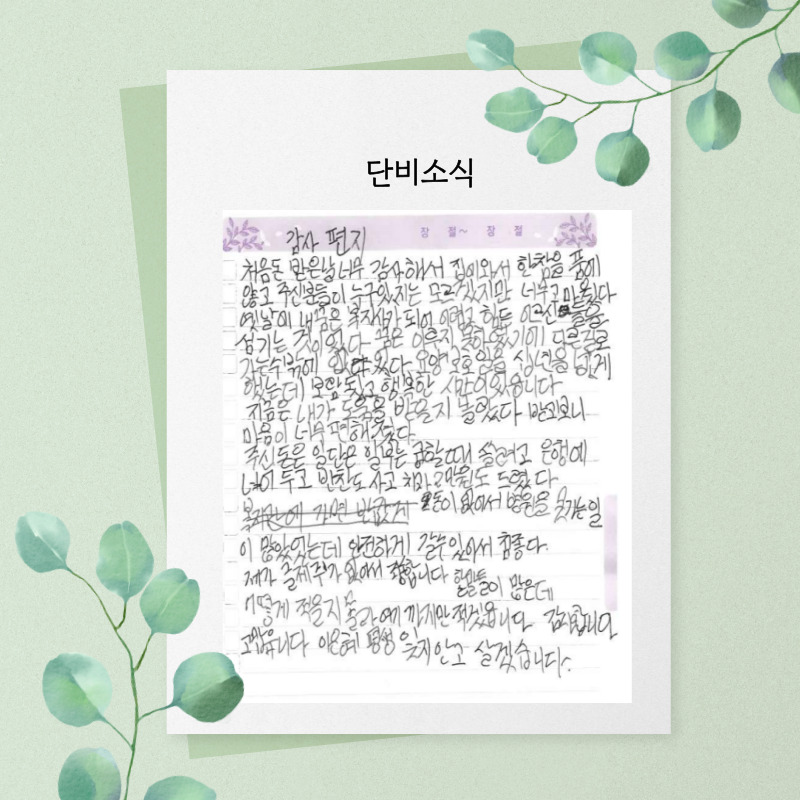 단비소식
장 절~ 장 절
감사 편지
처음돈 받은날 너무 감사해서 집이와서 한참을 품에
않고 주신분들이 누구있지는 모르겠지만 너무고마웠다
옛날에 내꿈은 복지사가 되어 어렵고 힘든 어르신들을
섬기는 것이었다 꿈은 이루지 못하였기에 다른길로
가는수밖에 없었다 요양보호일을 십년을 넘게
했는데 보람되고 행복한 시간이었읍니다
지금은 내가 도움을 받을지 몰랐다 받고보니
마음이 너무 편해졌다
주신돈은 일단은 일부는 급할때 쓸려고 은행에
넣어 두고 반찬도 사고 치과 도 드렸다
돈이 없어서 병원을 못가는일
이 많았었는데 안전하게 갈수있어서 참좋다
제가 글재주가 없어서 합니다 할말들이 많은데
어떻게 적을지 몰라 여기까지만 적겠읍니다 감사합니다
고맙읍니다 이은혜 평생 잊지안고 살겠습니다.